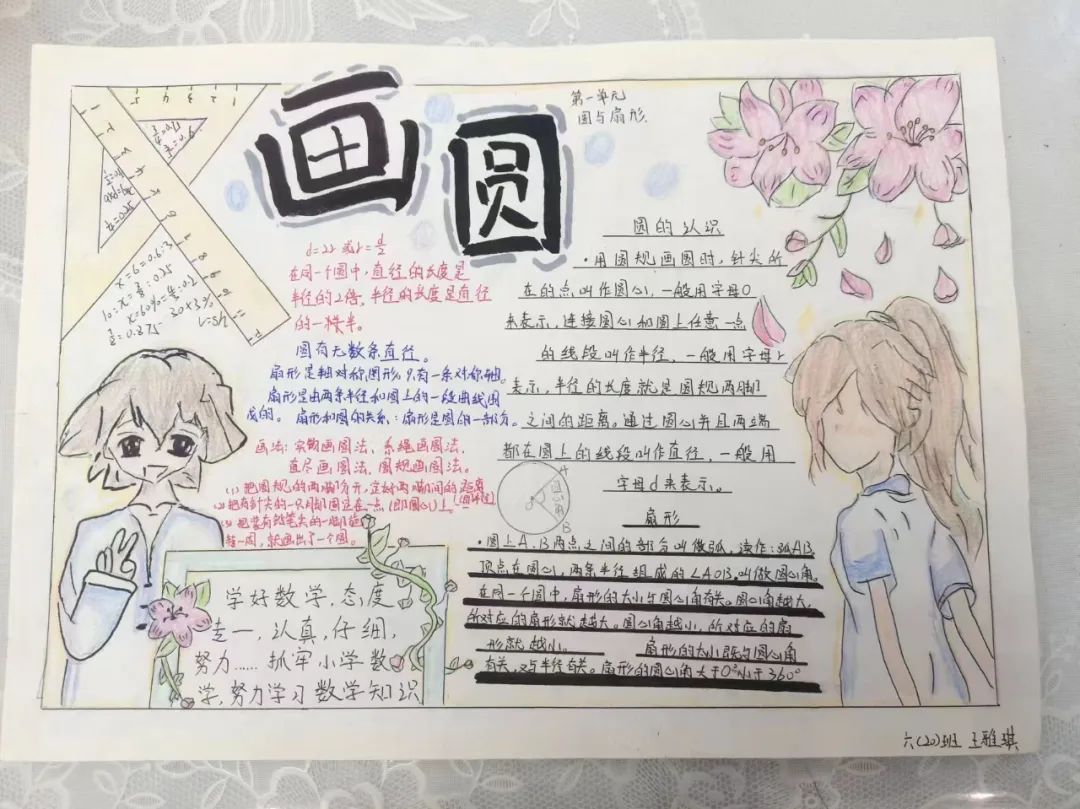 画圆
第一单元
圆与扇形.
d=2r 或r=d/2
在同一个圆中,直径的长度是
半径的2倍,半径的长度是直径
的一半。
圆有无数条直径。
扇形是轴对称图形,只有一条对称轴。
扇形是由两条半径和圆上的一段曲线围
成的。扇形和圆的关系:扇形是圆的一部分。
画法:实物画圆法、系绳画圆法、
直尺画圆法、圆规画圆法。
(1)把圆规的两脚分开,定好两脚间的距离
(即半径)
(2)把有针尖的一只脚固定在一点(即圆心)上。
(3)把装有铅笔尖的一脚旋
转一周,就画出了一个圆。
学好数学,态度
专一,认真,仔细,
努力……抓牢小学数
学,努力学习数学知识
圆的认识
·用圆规画圆时,针尖所
在的点叫作圆心,一般用字母O
来表示,连接圆心和圆上任意一点
的线段叫作半径,一般用字母r
表示,半径的长度就是圆规两脚
之间的距离。通过圆心并且两端
都在圆上的线段叫作直径,一般用
字母d来表示。
A
圆心角
O
B
扇形
·圆上A、B两点之间的部分叫做弧,读作:弧AB
顶点在圆心,两条半径组成的∠AOB,叫做圆心角。
在同一个圆中,扇形的大小与圆心角有关。圆心角越大,
所对应的扇形就越大。圆心角越小,所对应的扇
形就越小。 扇形的大小既与圆心角
有关,又与半径有关。扇形的圆心角大于0°小于360°
x=6=0.6:3
10=x=⅛:0.25
x=60%=4:0.2
20+3%
V=sh
六(20)班 王雅琪